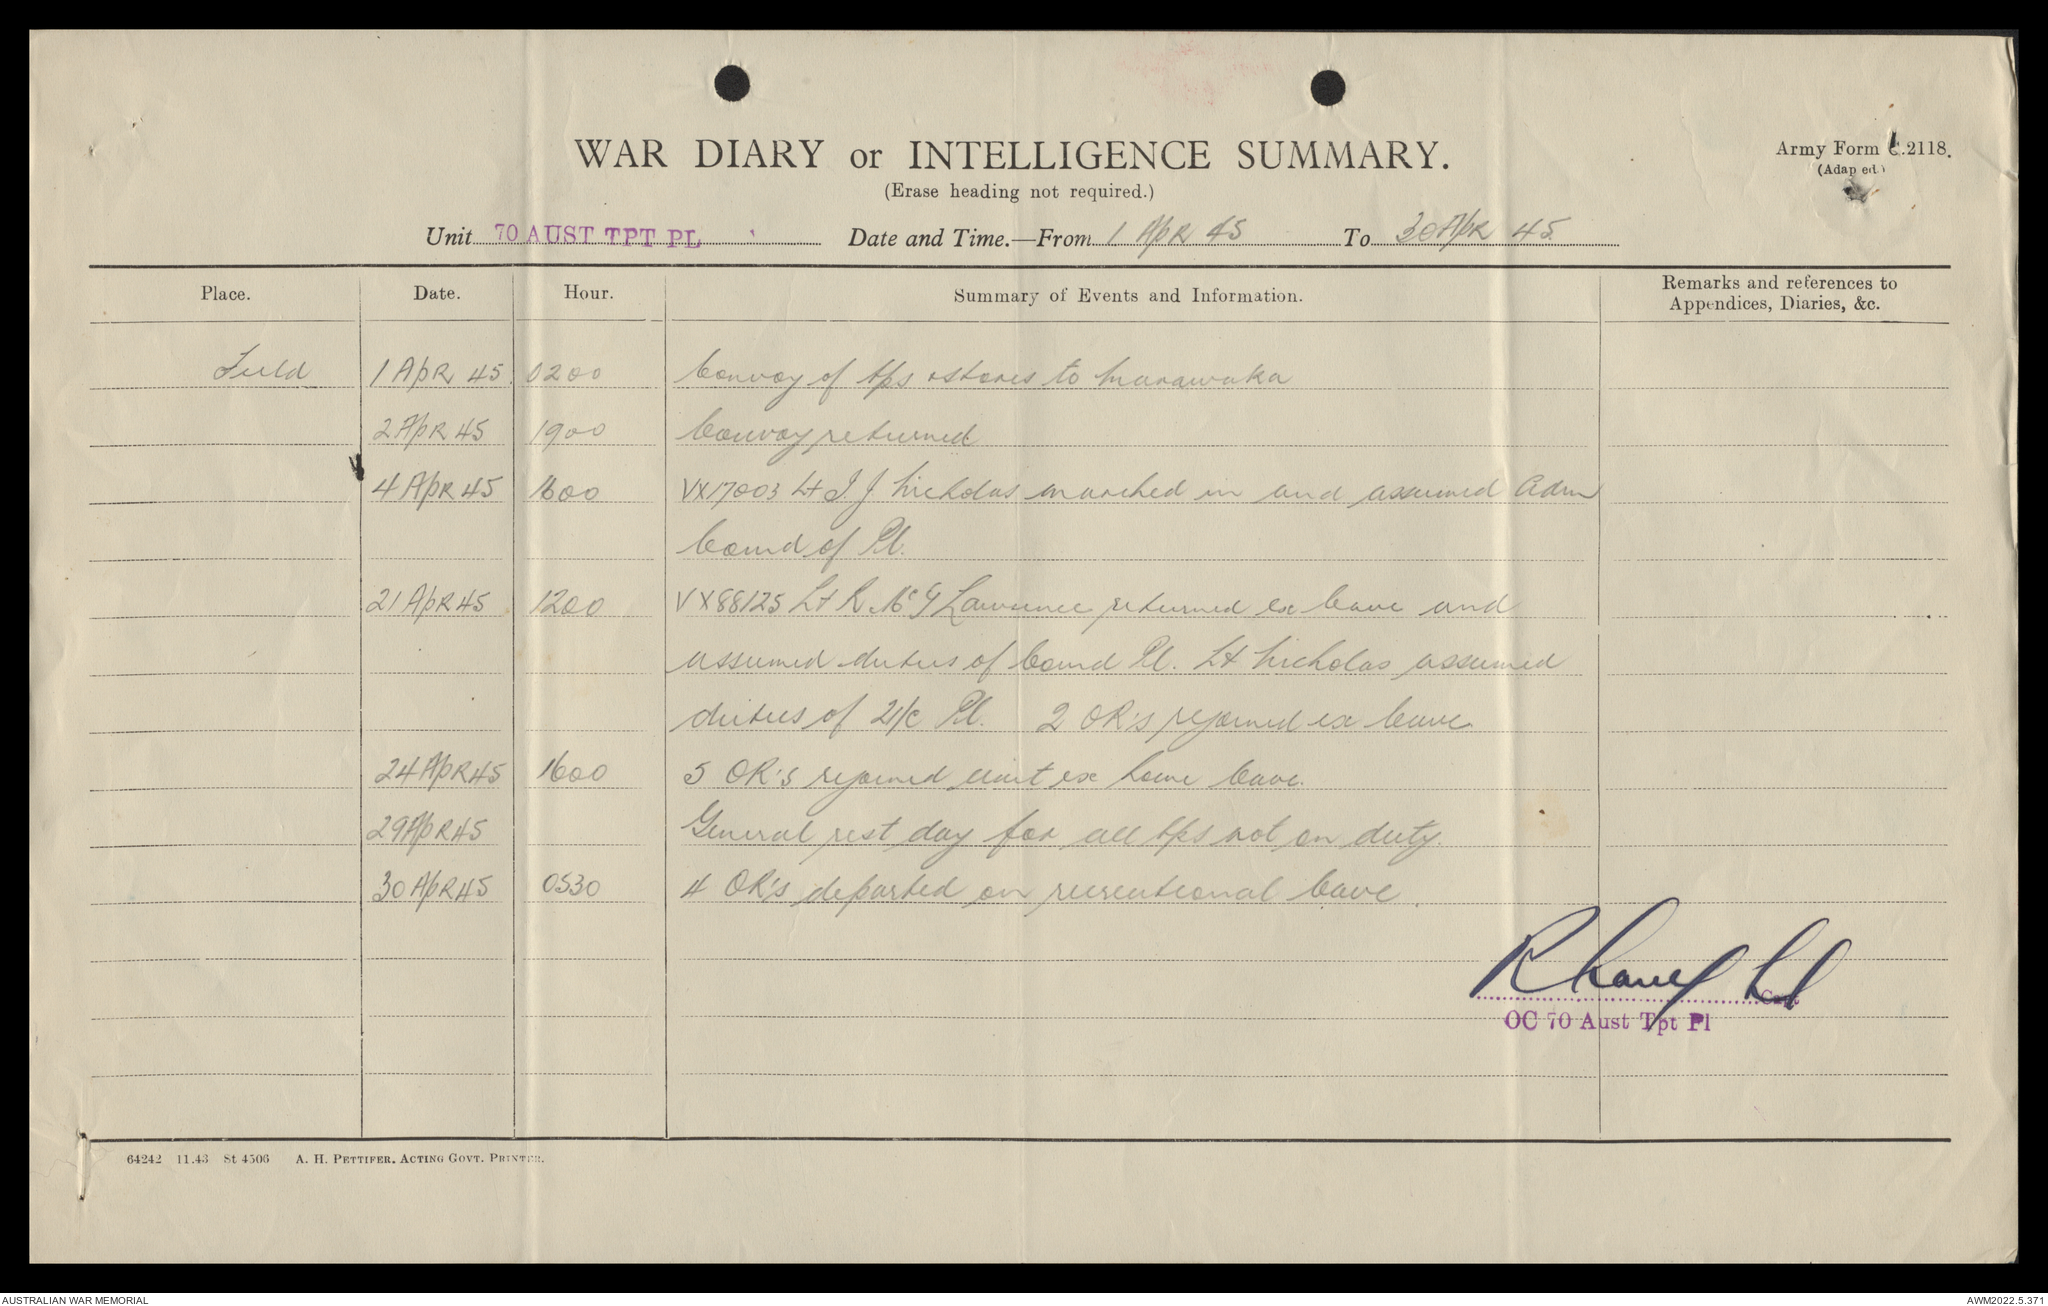 WAR DIARY or INTELLIGENCE SUMMARY.
(Erase heading not required.)
Army Form C.2118.
(Adapted.)
Unit 70 AUST TPT PL Date and Time.—From 1 APR 45 To 30 APR 45
Place. Date. Hour. Summary of Events and Information. Remarks and references to Appendices, Diaries, &c.
Field 1 APR 45 0200 Convoy of tps & stores to
2 APR 45 1900 Convoy returned
4 APR 45 1600 VX17003 Lt J. J Nicholas marched in and assumed Adm
Comd of Pl.
21 APR 45 1200 VX88125 Lt R. McG Lawrence returned ex leave and
assumed duties of Comd Pl. Lt Nicholas assumed
duties of 2I/C Pl. 2 OR's rejoined ex leave.
24 APR 45 1600 5 OR's rejoined unit ex home leave.
29 APR 45 General rest day for all tps not on duty.
30 APR 45 0530 4 OR's departed on recreational leave.
Lt
Capt
OC 70 Aust Tpt Pl
64242 11.43 St 4506 A. H. PETTIFER, ACTING GOVT. PRINTER.
AUSTRALIAN WAR MEMORIAL
AWM2022.5.371